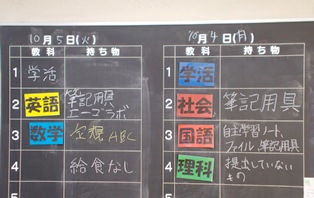 10月5日(火)
教科 持ち物
1 学活
2 英語 筆記用具
エニーゴラボ
3 数学 ABC
4 給食なし
10月4日(月)
教科 持ち物
1 学活
2 社会 筆記用具
3 国語 自主学習ノート、
ファイル、筆記用具
4 理科 提出していない
もの